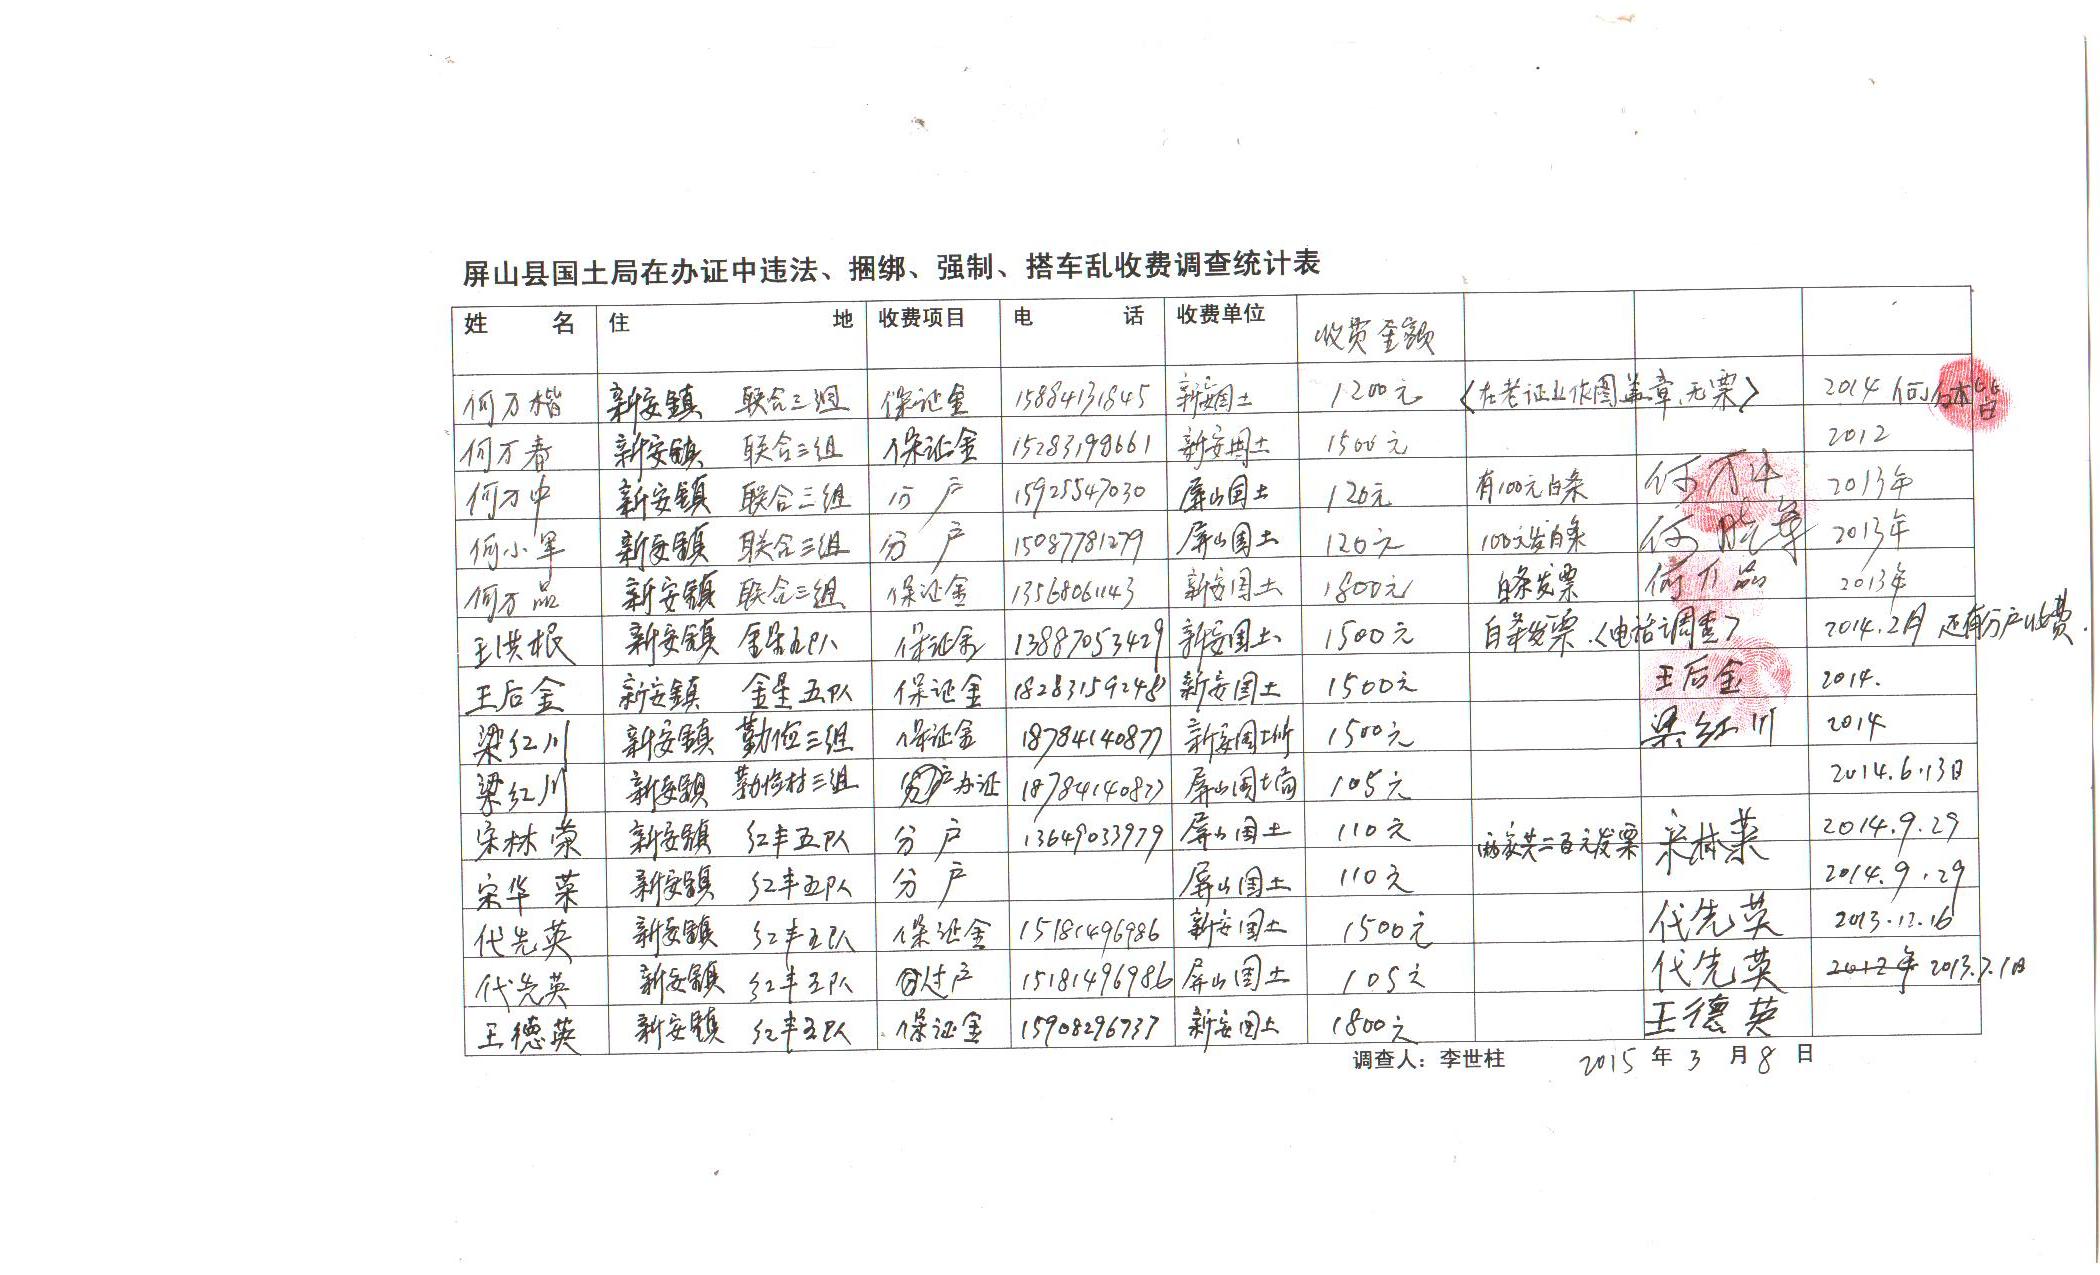 屏山县国土局在办证中违法、捆绑、强制、搭车乱收费调查统计表
姓 名 住 地 收费项目 电 话 收费单位 收费金额
何万楷 新安镇 联合三组 保证金 15884131845 新安国土 1200元 〈在老证上作图盖章、无票〉 2014 何
何万春 新安镇 联合三组 保证金 15283198661 新安国土 1500元 2012
何万中 新安镇 联合三组 分户 15925547030 屏山国土 120元 有100元白条 何万中 2013年
何小军 新安镇 联合三组 分户 15087781279 屏山国土 120元 100元发白条 何晓军 2013年
何万品 新安镇 联合三组 保证金 13568061143 新安国土 1800元 白条发票 何万品 2013年
王洪根 新安镇 金星五队 保证金 13887053429 新安国土 1500元 白条发票.〈电话调查〉 2014.2月 还有分户收费.
王后金 新安镇 金星五队 保证金 18283159248 新安国土 1500元 王后金 2014.
梁红川 新安镇 勤俭三组 保证金 18784140877 新安国土所 1500元 梁红川 2014
梁红川 新安镇 勤俭村三组 分户办证 18784140877 屏山国土局 105元 2014.6.13日
宋林荣 新安镇 红丰五队 分户 13649033979 屏山国土 110元 两家共二百元发票 宋林荣 2014.9.29
宋华荣 新安镇 红丰五队 分户 屏山国土 110元 2014.9.29
代先英 新安镇 红丰五队 保证金 15181496986 新安国土 1500元 代先英 2013.12.16
代先英 新安镇 红丰五队 过户 15181496986 屏山国土 105元 代先英 2012年 2013.7.1日
王德英 新安镇 红丰五队 保证金 15908296737 新安国土 1800元 王德英
调查人：李世柱 2015年3月8日